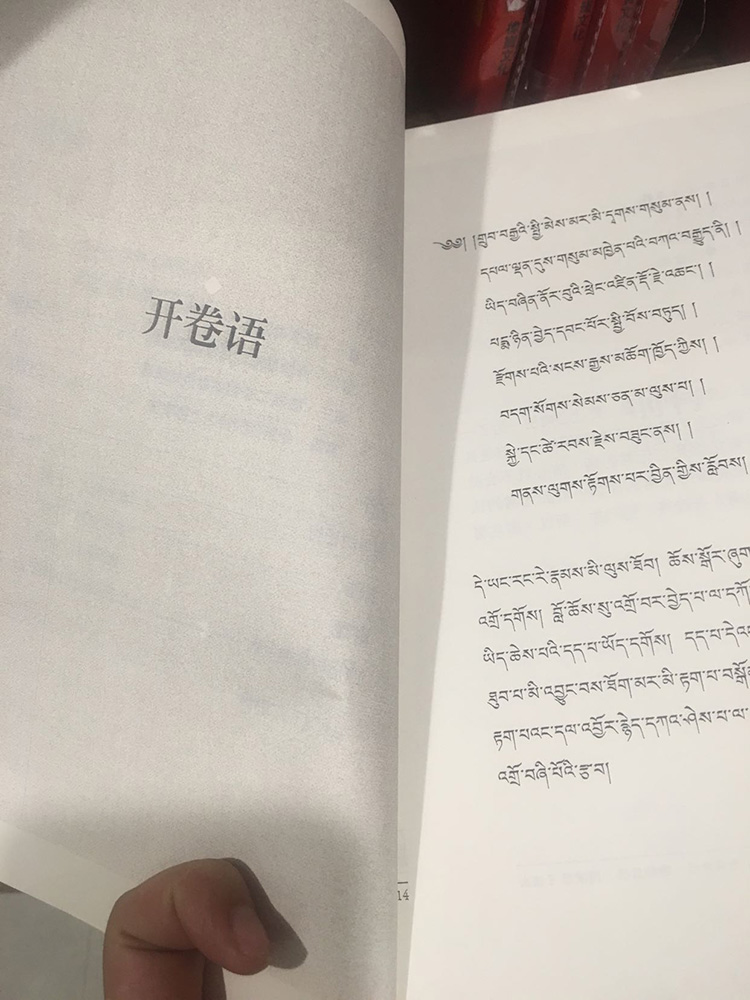 开卷语
༄༅། །གྲུབ་བརྒྱའི་སྤྱི་མེས་མར་མི་དྭགས་གསུམ་ནས། །
དཔལ་ལྡན་དུས་གསུམ་མཁྱེན་པའི་བཀའ་བརྒྱུད་ནི། །
ཡིད་བཞིན་ནོར་བུའི་ཕྲེང་འཛིན་རྡོ་རྗེ་འཆང་། །
པདྨ་ཉིན་བྱེད་དབང་པོར་སྤྱི་བོས་བཏུད། །
རྫོགས་པའི་སངས་རྒྱས་མཆོག་ཁྱོད་ཀྱིས། །
བདག་སོགས་སེམས་ཅན་མ་ལུས་པ། །
སྐྱེ་དང་ཚེ་རབས་རྗེས་བཟུང་ནས། །
གནས་ལུགས་རྟོགས་པར་བྱིན་གྱིས་རློབས།
དེ་ཡང་རང་རེ་རྣམས་མི་ལུས་ཐོབ། ཆོས་སྒོར་ཞུག
འགྲོ་དགོས། བློ་ཆོས་སུ་འགྲོ་བར་བྱེད་པ་ལ་དཀོ
ཡིད་ཆེས་པའི་དད་པ་ཡོད་དགོས། དད་པ་དེའང
ཐུབ་པ་མི་འབྱུང་བས་ཐོག་མར་མི་རྟག་པ་བསྒོ
རྟག་པའང་དལ་འབྱོར་རྙེད་དཀའ་ཤེས་པ་ལ་
འགྲོ་བཞི་པོའི་རྩ་བ།
14